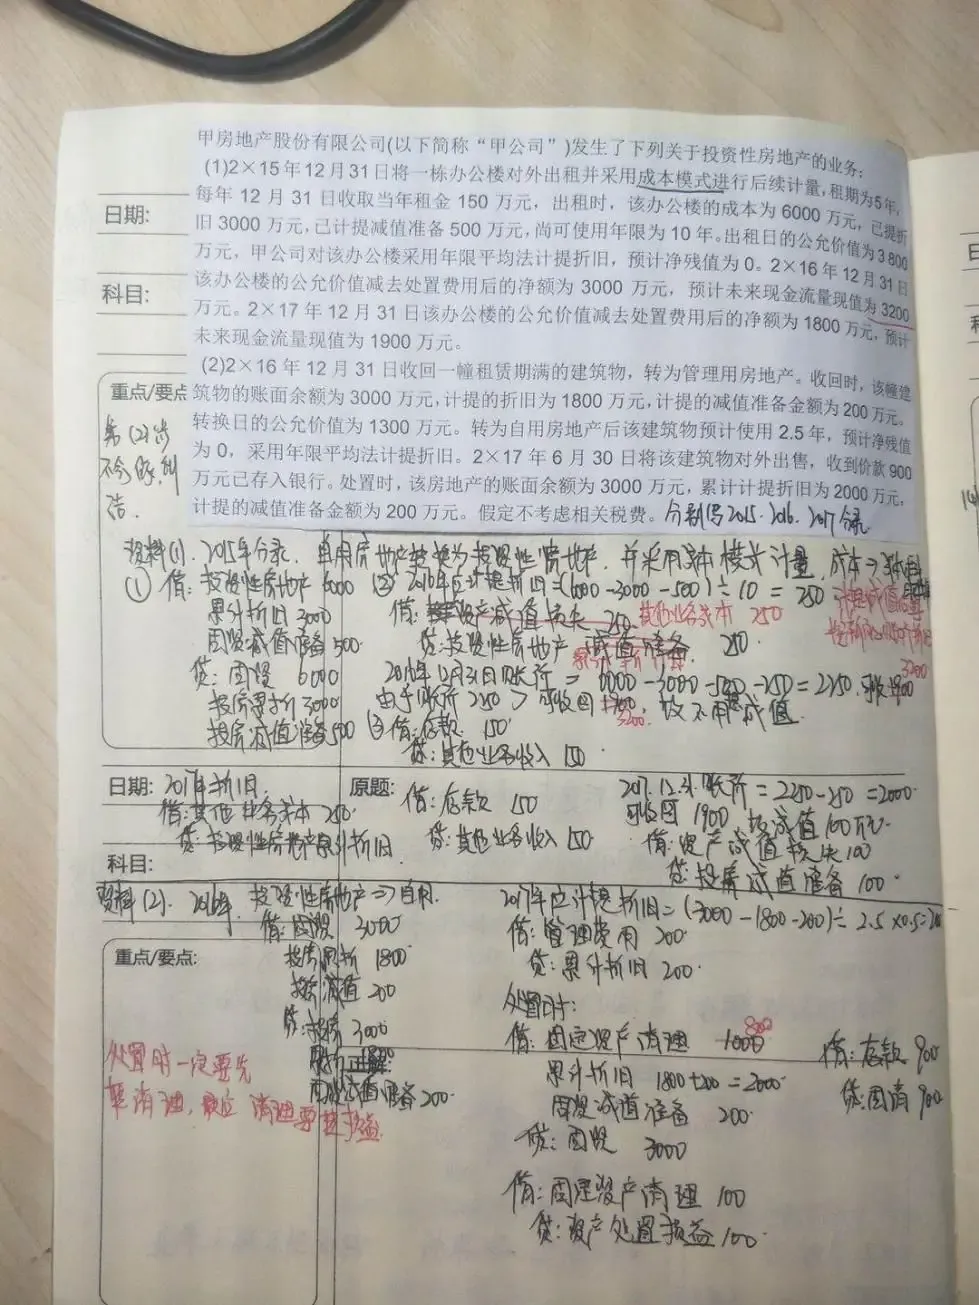 甲房地产股份有限公司(以下简称“甲公司”)发生了下列关于投资性房地产的业务:
(1)2×15年12月31日将一栋办公楼对外出租并采用成本模式进行后续计量,租期为5年,
每年12月31日收取当年租金150万元,出租时,该办公楼的成本为6000万元,已提折
旧3000万元,已计提减值准备500万元,尚可使用年限为10年。出租日的公允价值为3800
万元,甲公司对该办公楼采用年限平均法计提折旧,预计净残值为0。2×16年12月31日
该办公楼的公允价值减去处置费用后的净额为3000万元,预计未来现金流量现值为3200
万元。2×17年12月31日该办公楼的公允价值减去处置费用后的净额为1800万元,预计
未来现金流量现值为1900万元。
(2)2×16年12月31日收回一幢租赁期满的建筑物,转为管理用房地产。收回时,该幢建
筑物的账面余额为3000万元,计提的折旧为1800万元,计提的减值准备金额为200万元。
转换日的公允价值为1300万元。转为自用房地产后该建筑物预计使用2.5年,预计净残值
为0,采用年限平均法计提折旧。2×17年6月30日将该建筑物对外出售,收到价款900
万元已存入银行。处置时,该房地产的账面余额为3000万元,累计计提折旧为2000万元,
计提的减值准备金额为200万元。假定不考虑相关税费。分别写2015.2016.2017分录
日期:
科目:
重点/要点
第(2)步
不会
资料(1). 2015年分录. 自用房地产转换为投资性房地产,并采用成本模式计量,成本⇒
① 借:投资性房地产 6000
累计折旧 3000
固资减值准备 500
贷:固资 6000
投房累折 3000
投房减值准备 500
② 2016年应计提折旧=(6000-3000-500)÷10=250
借:资产减值损失 250 其他业务成本 250
贷:投资性房地产减值准备 250
累计折旧
2016年12月31日账价=6000-3000-500-250=2250. 可收 1900 3200
由于账价2250>可收回1900 3200, 故不用减值
③ 借:存款 150
贷:其他业务收入 150
日期: 2017年折旧
借:其他业务成本 250
贷:投资性房地产累计折旧
原题:
借:存款 150
贷:其他业务收入 150
2017.12.31.账价=2250-250=2000
可收回1900 故减值100万元
借:资产减值损失 100
贷:投房减值准备 100
科目:
资料(2). 2016年. 投资性房地产⇒自用
借:固资 3000
投房累折 1800
投房减值 200
贷:投房 3000
累折 1800
固资减值准备 200
2017年应计提折旧=(3000-1800-200)÷2.5×0.5=200
借:管理费用 200
贷:累计折旧 200
处置时:
借:固定资产清理 1000 800
累计折旧 1800+200=2000
固资减值准备 200
贷:固资 3000
借:存款 900
贷:固清 900
借:固定资产清理 100
贷:资产处置损益 100
重点/要点:
正解:
处置时一定要先
清理, 最后清理要转损益